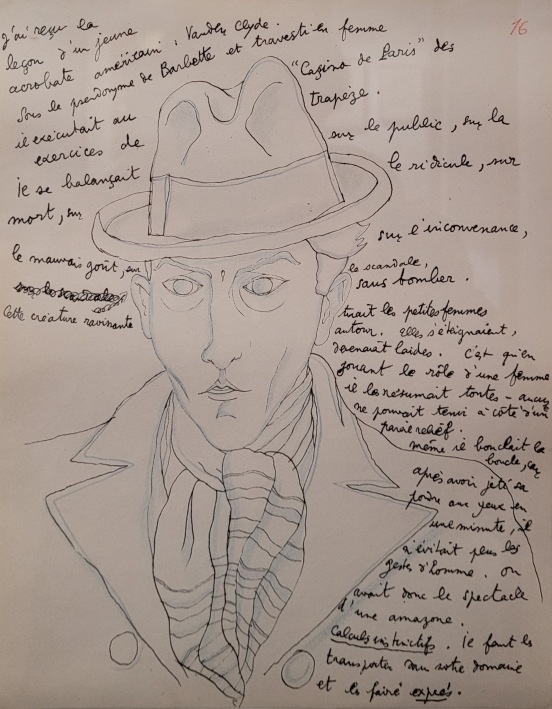 16
J'ai reçu la
leçon d'un jeune
acrobate américain : Vander Clyde.
Sous le pseudonyme de Barbette et travesti en femme
il exécutait au "Casino de Paris" des
exercices de trapèze.
Il se balançait sur le public, sur la
mort, sur le ridicule, sur
le mauvais goût, sur sur l'inconvenance,
le scandale,
sans tomber.
Cette créature ravissante
tuait les petites femmes
autour. Elles s'éteignaient,
devenaient laides. C'est qu'en
jouant le rôle d'une femme
il les résumait toutes –
ne pouvait tenir à côté d'un
pareil relief.
même il bouclait la
boucle, car
après avoir jeté sa
poudre aux yeux en
une minute, il
n'évitait plus les
gestes d'homme. on
avait donc le spectacle
d'une amazone.
Calculs instinctifs. Il faut les
transporter dans notre domaine
et les faire exprès.